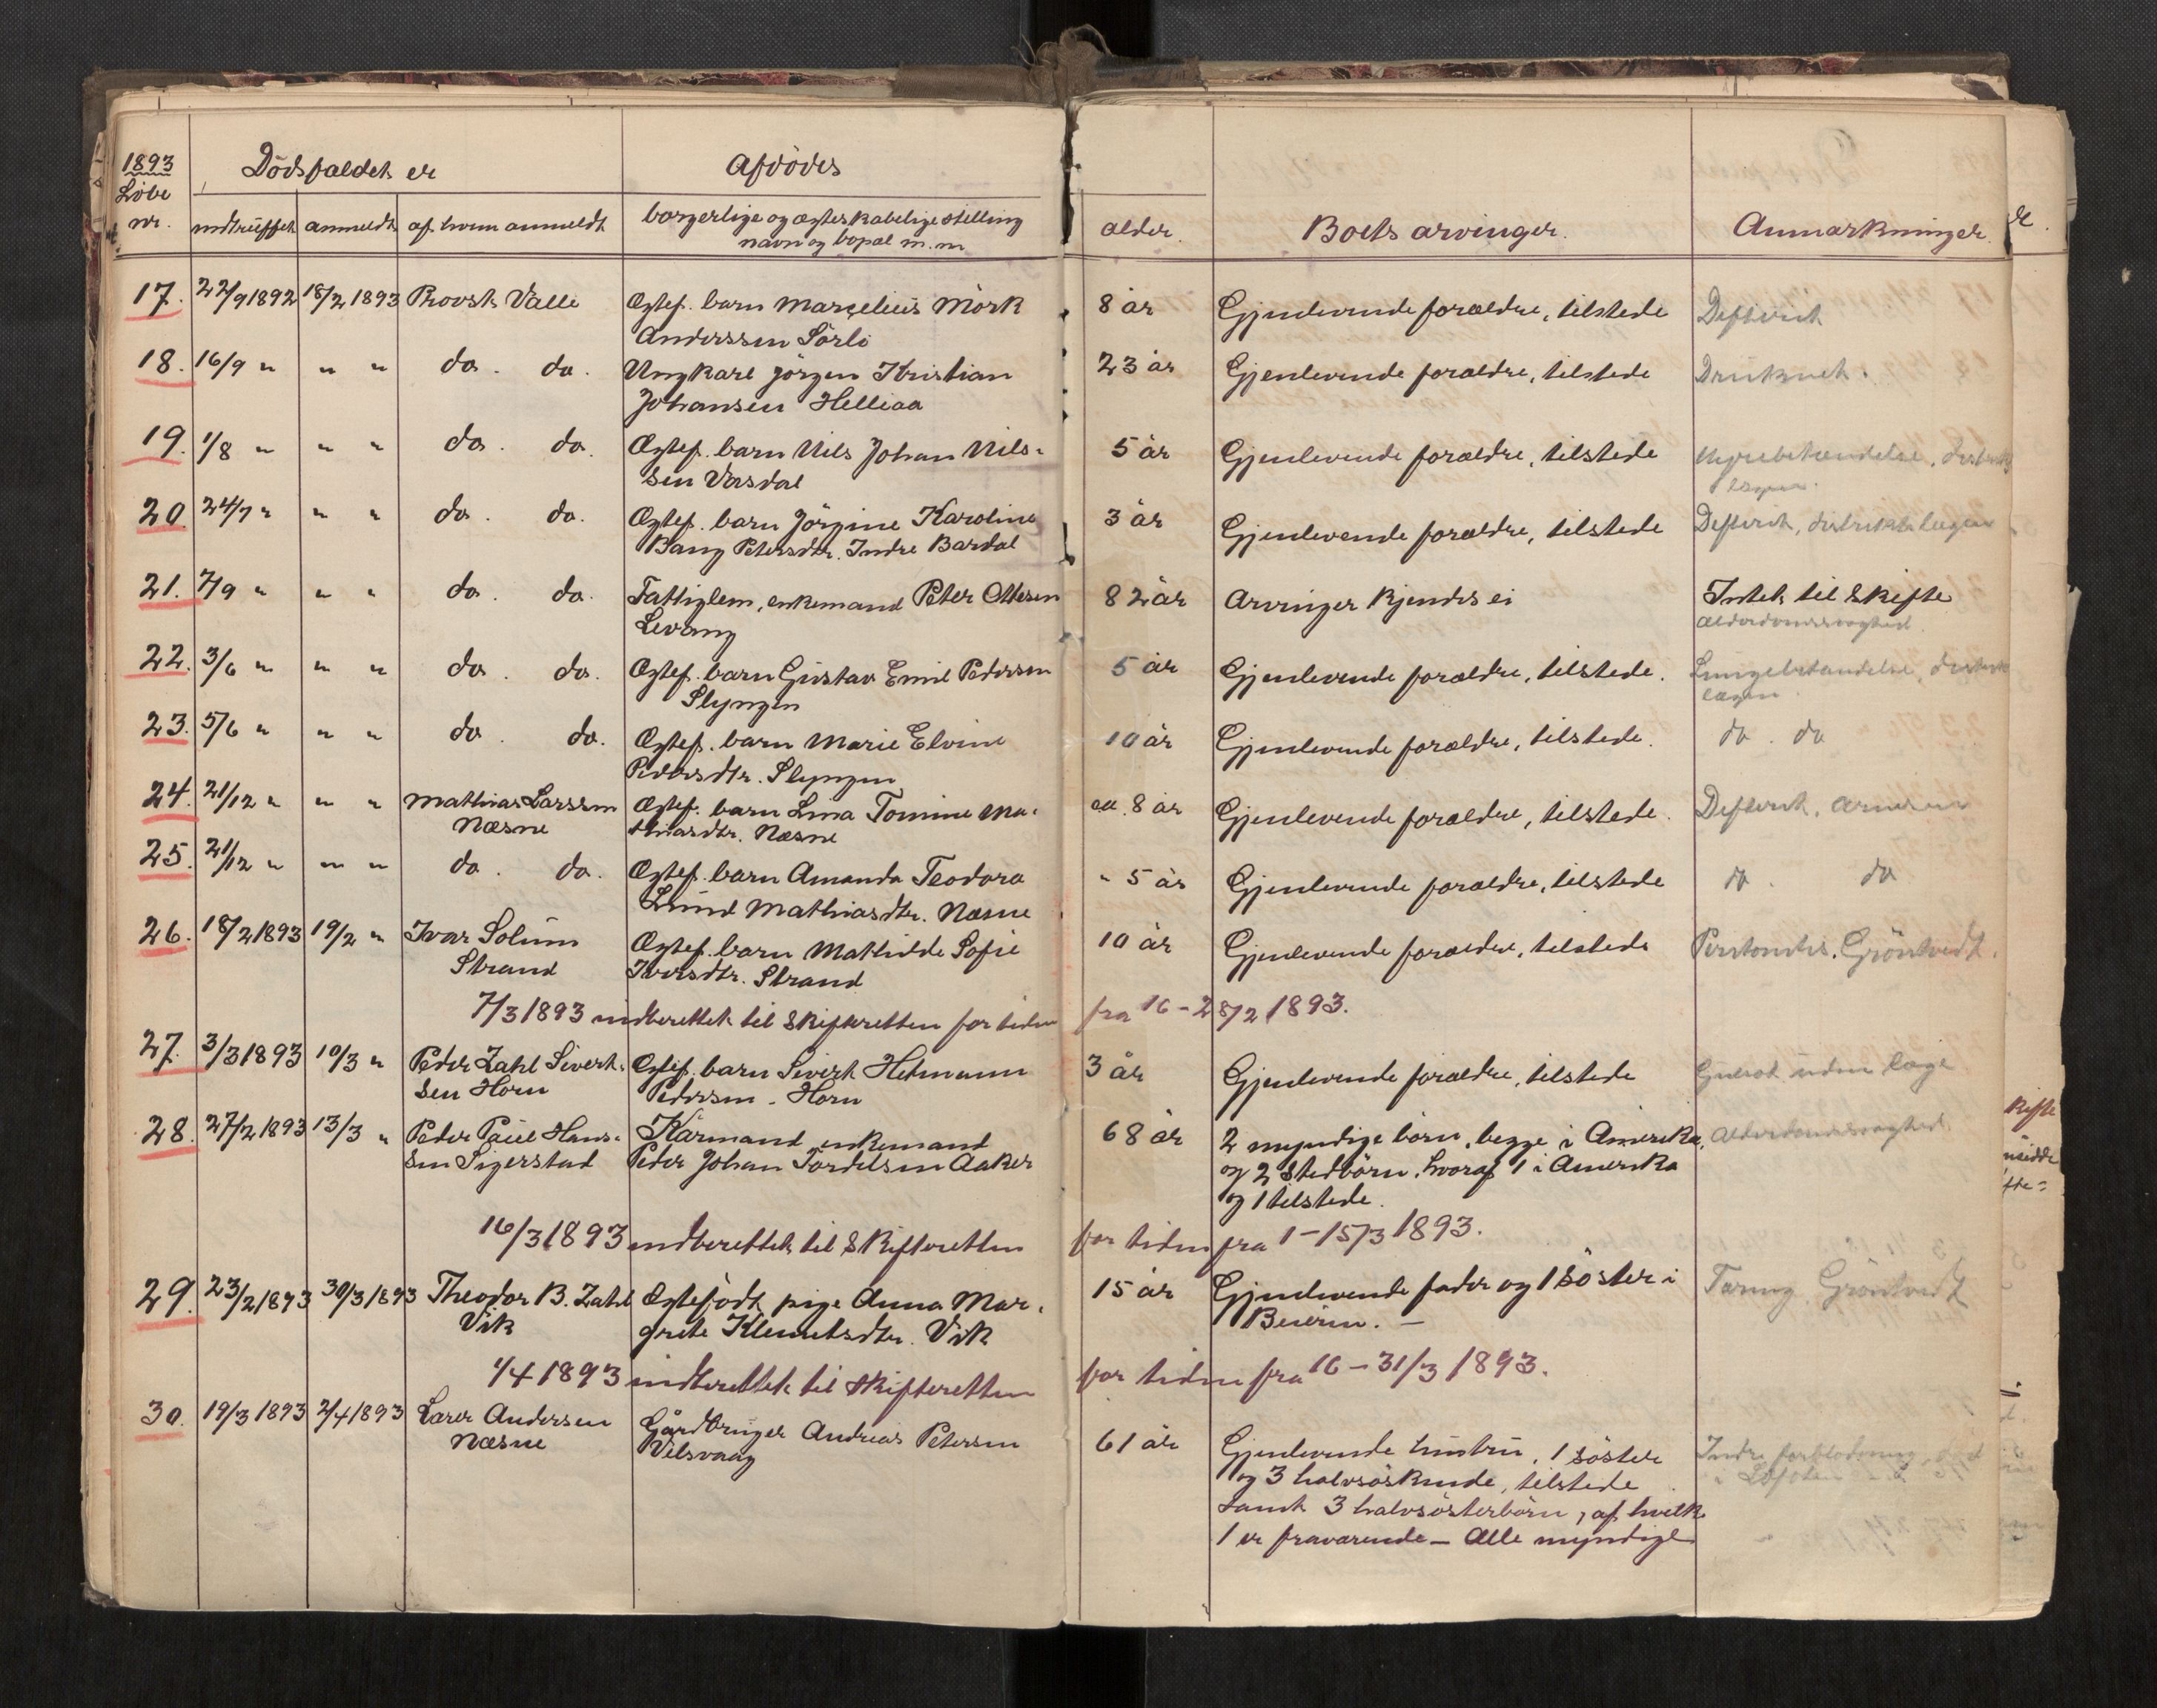 1893
Dödsfaldet er
Afdödes
Löbe
nr.
indtruffet
anmeldt
af hvem anmeldt
borgerlige og ægteskabelige stilling
navn og bopæl m.m.
alder.
Boets arvinger.
Anmærkninger.
17. 22/9 1892 18/2 1893 Provst Valle Ægtef. barn Marcelius Mörk 8 år Gjenlevende forældre, tilstede Difterit
Anderssen Sörli
18. 16/9 " " " do. do. Ungkarl Jörgen Kristian 23 år Gjenlevende forældre, tilstede Druknet.
Johansen Helliaa
19. 1/8 " " " do. do. Ægtef. barn Nils Johan Nils- 5 år Gjenlevende forældre, tilstede Nyrebetændelse, distrikts
sen Vasdal lægen.
20. 24/7 " " " do. do. Ægtef. barn Jörgine Karoline 3 år Gjenlevende forældre, tilstede Difterit, distriktslægen
Bang Petersdtr. Indre Bardal
21. 7/9 " " " do. do. Fattiglem, enkemand Peter Ottesen 82 år Arvinger kjendes ei Intet til skifte
Levang Alderdomssvaghed
22. 3/6 " " " do. do. Ægtef. barn Gustav Emil Pedersen 5 år Gjenlevende forældre, tilstede. Lungebetændelse, distrikts
Slyngen lægen.
23. 5/6 " " " do. do. Ægtef. barn Marie Elvine 10 år Gjenlevende forældre, tilstede. do. do
Pedersdtr. Slyngen
24. 21/12 " " " Mathias Larssen Ægtef. barn Lina Tomine Ma- ca. 8 år Gjenlevende forældre, tilstede. Difterit. Arnesen
Næsne thiasdtr. Næsne
25. 21/12 " " " do. do. Ægtef. barn Amanda Teodora " 5 år Gjenlevende forældre, tilstede do. do
Lund Mathiasdtr. Næsne
26. 18/2 1893 19/2 " Ivar Solum Ægtef. barn Mathilde Sofie 10 år Gjenlevende forældre, tilstede Peritonitis. Gröntvedt.
Strand Iversdtr. Strand
7/3 1893 indberettet til skifteretten for tiden fra 16-28/2 1893.
27. 3/3 1893 10/3 " Peder Zahl Sivert- Ægtef. barn Sivert Hetmann 3 år Gjenlevende forældre, tilstede Gulsot uden læge
sen Horn Pedersen. Horn
28. 27/2 1893 13/3 " Peder Paul Hans- Kårmand, enkemand 68 år 2 myndige börn, begge i Amerika, Alderdomssvaghed.
sen Sigerstad Peder Johan Tordelsen Aaker og 2 stedbörn, hvoraf 1 i Amerika
og 1 tilstede.
16/3 1893 indberettet til skifteretten for tiden fra 1-15/3 1893.
29. 23/2 1893 30/3 1893 Theodor B. Zahl Ægtefödt pige Anna Mar- 15 år Gjenlevende fader og 1 söster i Tæring. Gröntvedt
Vik grete Klemetsdtr. Vik Beieren. —
1/4 1893 indberettet til skifteretten for tiden fra 16-31/3 1893.
30. 19/3 1893 2/4 1893 Lærer Andersen Gårdbruger Andreas Petersen 61 år Gjenlevende hustru, 1 söster Indre forblödning, död
Næsne Velsvaag og 3 halvsöskende, tilstede i Lofoten
samt 3 halvsösterbörn, af hvilk.
1 er fraværende — Alle myndige